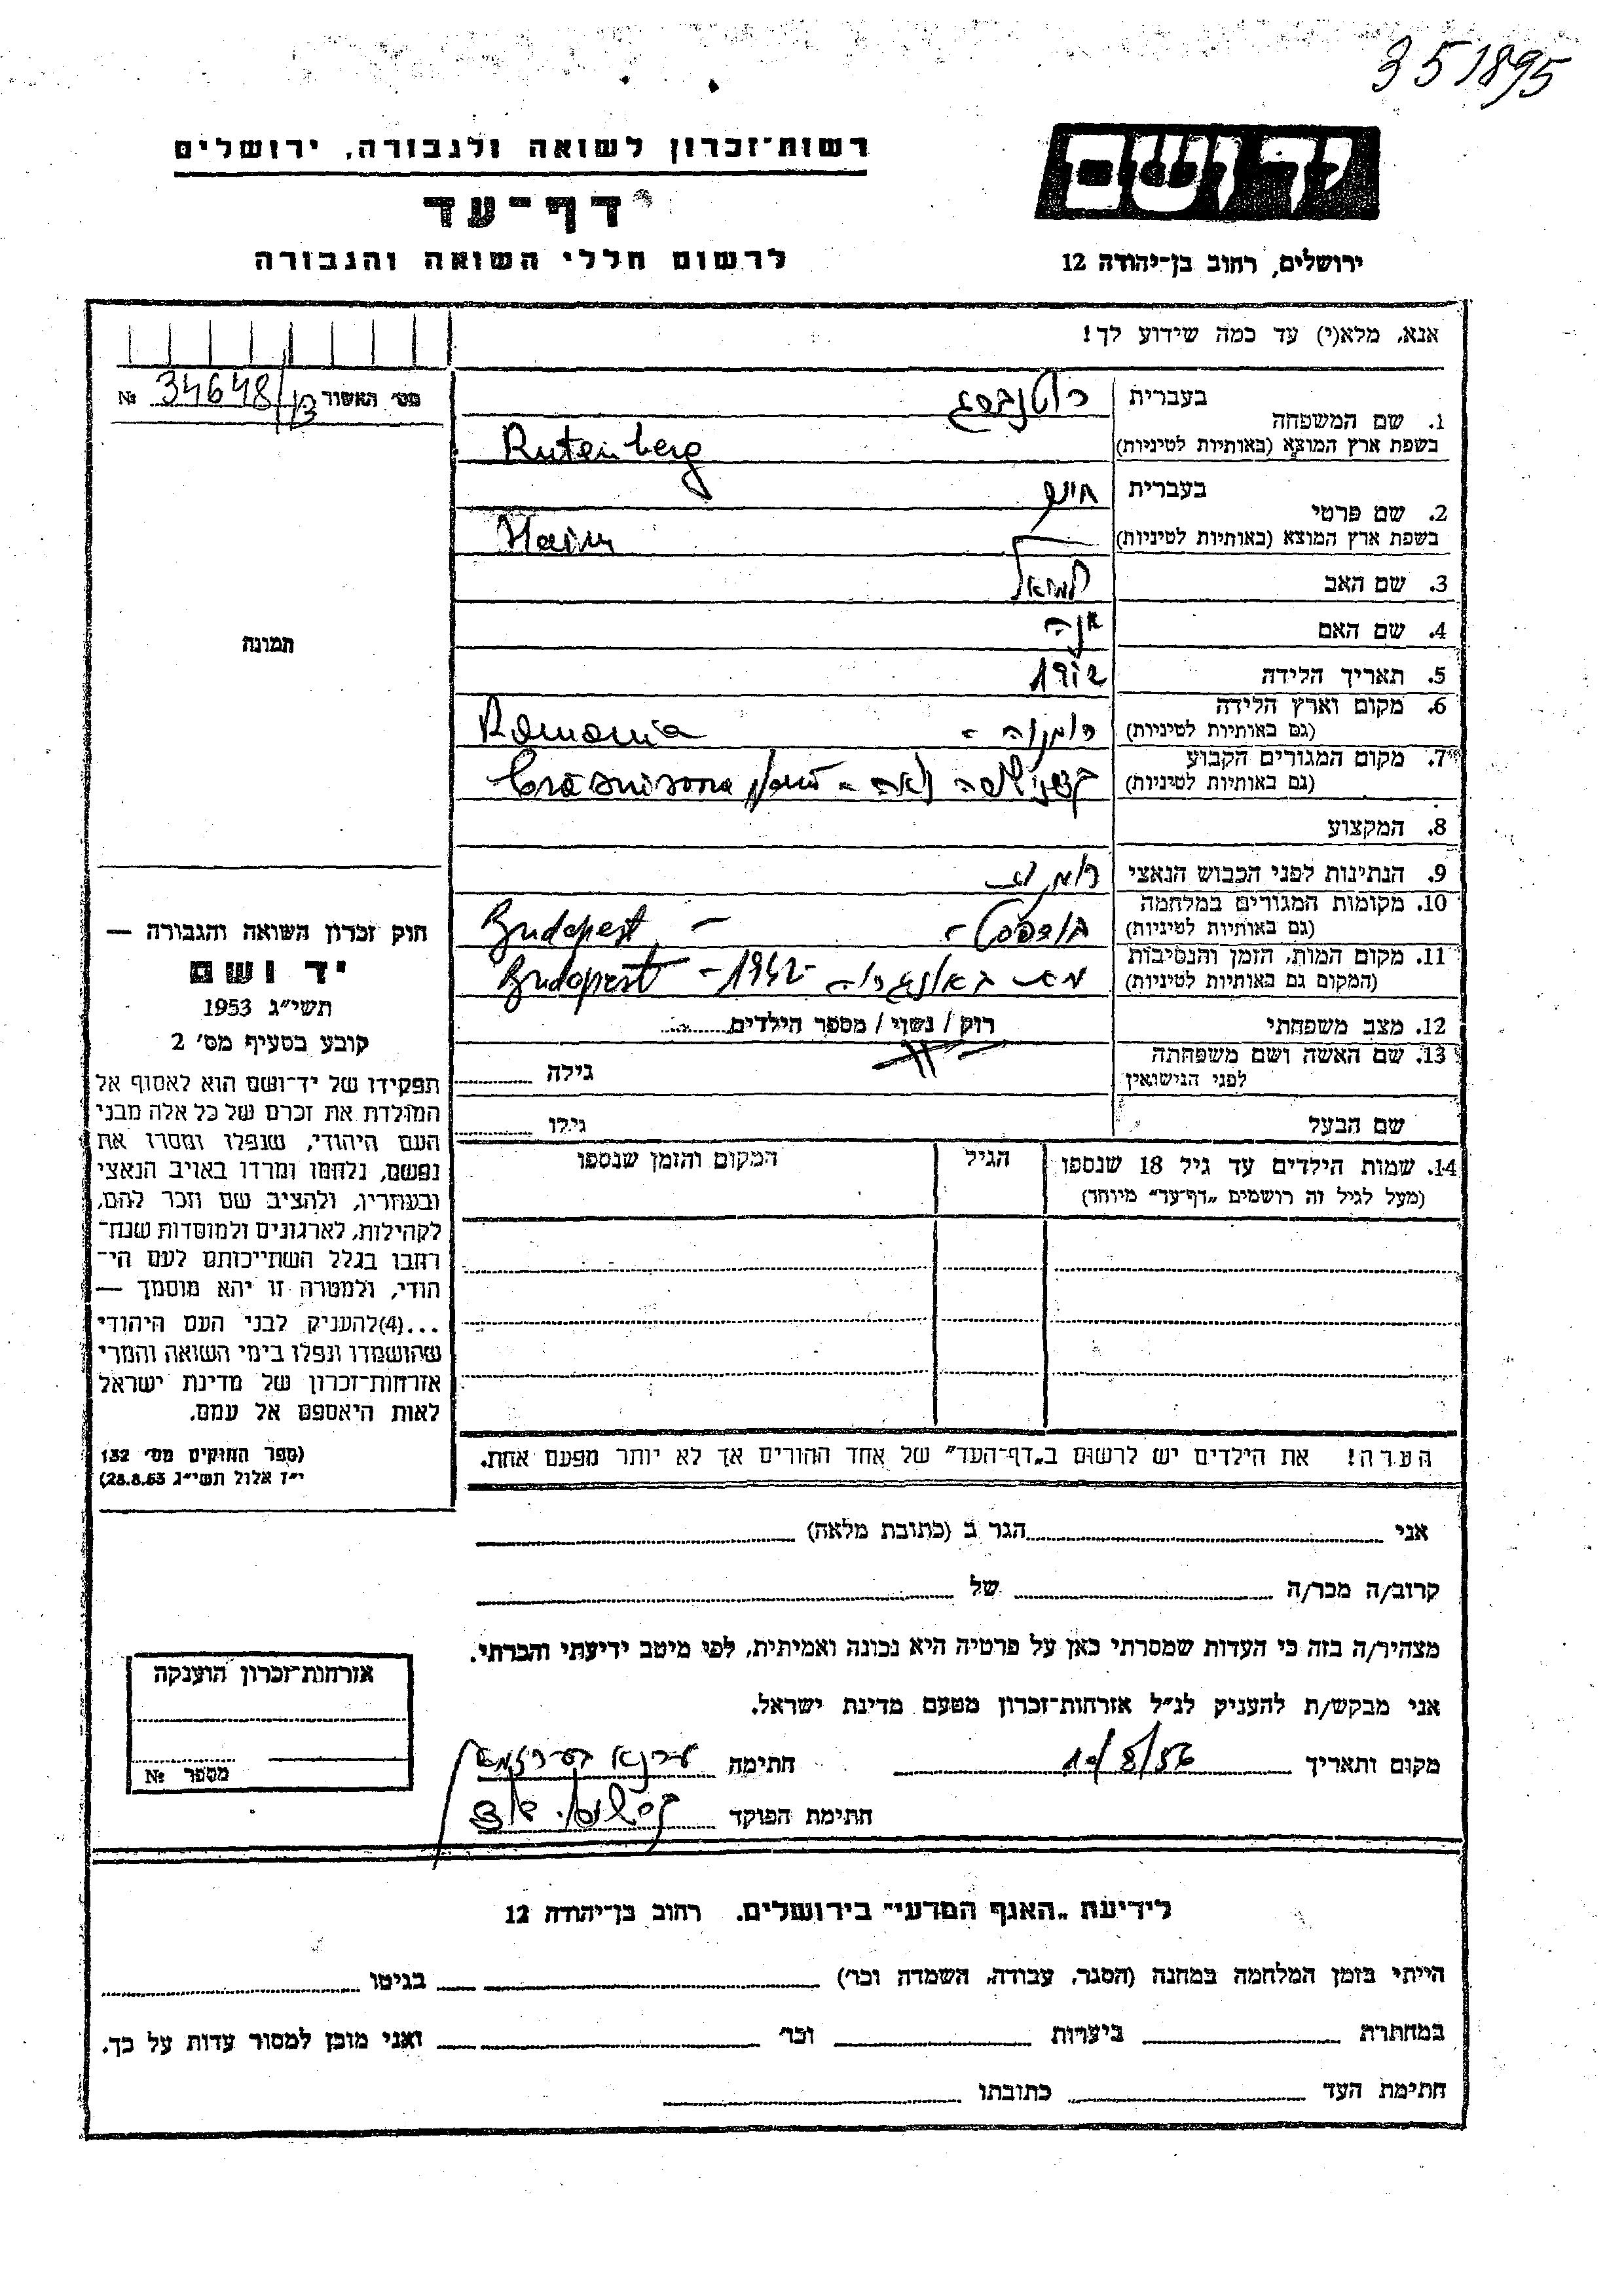 351895
רשות־זכרון לשואה ולגבורה, ירושלים
דף־עד
לרשום חללי השואה והגבורה
יד ושם
ירושלים, רחוב בן־יהודה 12
אנא, מלא(י) עד כמה שידוע לך!
מס׳ האשור 34648/13 №
1. שם המשפחה
בעברית רוטנברג
בשפת ארץ המוצא (באותיות לטיניות) Rutenberg
2. שם פרטי
בעברית חיים
בשפת ארץ המוצא (באותיות לטיניות) Haim
3. שם האב שמואל
4. שם האם אנה
5. תאריך הלידה
6. מקום וארץ הלידה
(גם באותיות לטיניות) רומניה - Romania
7. מקום המגורים הקבוע
(גם באותיות לטיניות)
8. המקצוע
9. הנתינות לפני הכבוש הנאצי רומנית
10. מקומות המגורים במלחמה
(גם באותיות לטיניות) בודפסט - Budapest
11. מקום המות, הזמן והנסיבות
(המקום גם באותיות לטיניות) מת בהונגריה -1942- Budapest
12. מצב משפחתי רוק / נשוי / מספר הילדים
13. שם האשה ושם משפחתה
לפני הנישואין
גילה
שם הבעל
גילו
14. שמות הילדים עד גיל 18 שנספו
(מעל לגיל זה רושמים „דף־עד״ מיוחד)
הגיל
המקום והזמן שנספו
הערה! את הילדים יש לרשום ב„דף־העד״ של אחד ההורים אך לא יותר מפעם אחת.
תמונה
חוק זכרון השואה והגבורה —
יד ושם
תשי״ג 1953
קובע בסעיף מס׳ 2
תפקידו של יד־ושם הוא לאסוף אל
המולדת את זכרם של כל אלה מבני
העם היהודי, שנפלו ומסרו את
נפשם, נלחמו ומרדו באויב הנאצי
ובעוזריו, ולהציב שם וזכר להם,
לקהילות, לארגונים ולמוסדות שנח־
רבו בגלל השתייכותם לעם הי־
הודי, ולמטרה זו יהא מוסמך —
...(4)להעניק לבני העם היהודי
שהושמדו ונפלו בימי השואה והמרי
אזרחות־זכרון של מדינת ישראל
לאות היאספם אל עמם.
(ספר החוקים מס׳ 132
י״ז אלול תשי״ג 28.8.53)
אני הגר ב (כתובת מלאה)
קרוב/ה מכר/ה של
מצהיר/ה בזה כי העדות שמסרתי כאן על פרטיה היא נכונה ואמיתית, לפי מיטב ידיעתי והכרתי.
אני מבקש/ת להעניק לנ״ל אזרחות־זכרון מטעם מדינת ישראל.
מקום ותאריך 10/8/56 חתימה
חתימת הפוקד
אזרחות־זכרון הוענקה
מספר №
לידיעת „האגף המדעי״ בירושלים. רחוב בן־יהודה 12
הייתי בזמן המלחמה במחנה (הסגר, עבודה, השמדה וכו׳) בגיטו
במחתרת ביערות וכו׳ ואני מוכן למסור עדות על כך.
חתימת העד כתובתו